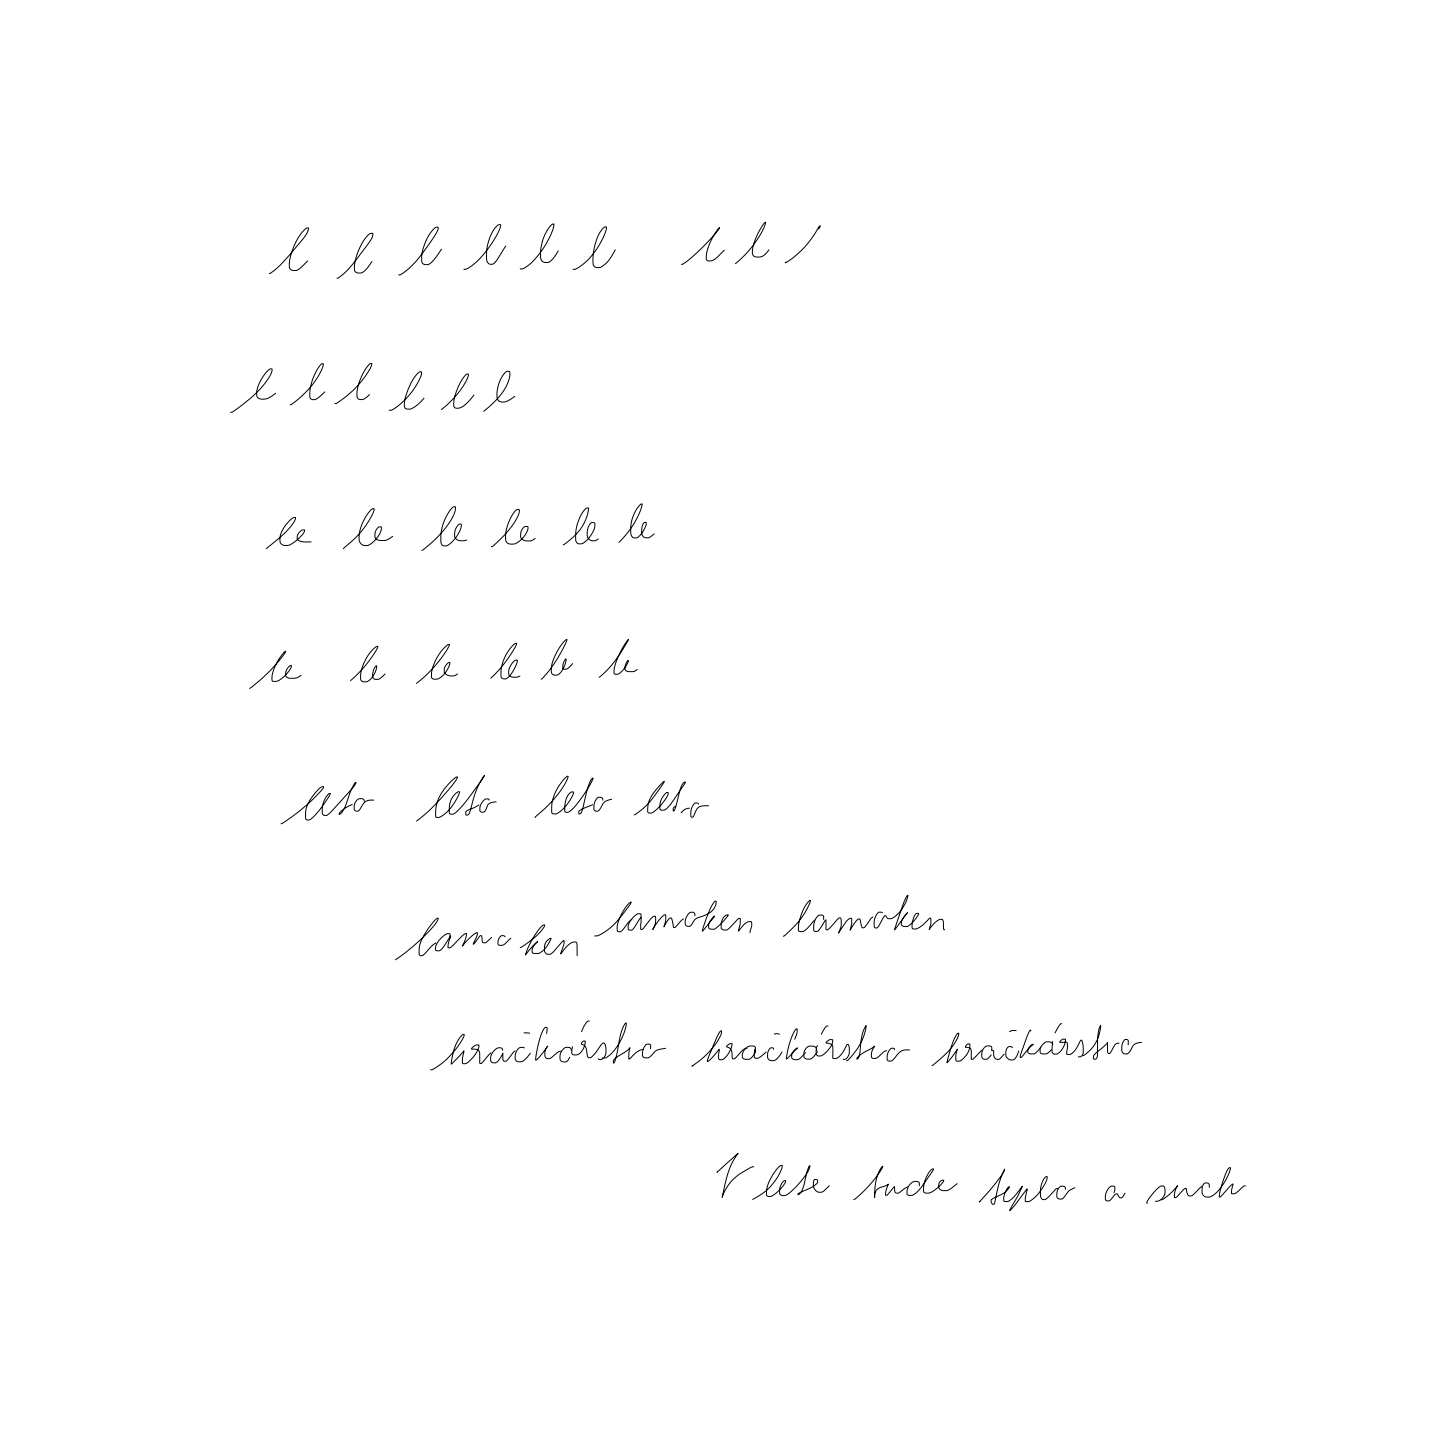 l l l l l l l l
l l l l l l
le le le le le le
le le le le le le
leto leto leto leto
lamoken lamoken lamoken
hračkárstvo hračkárstvo hračkárstvo
V lete tude teplo a such